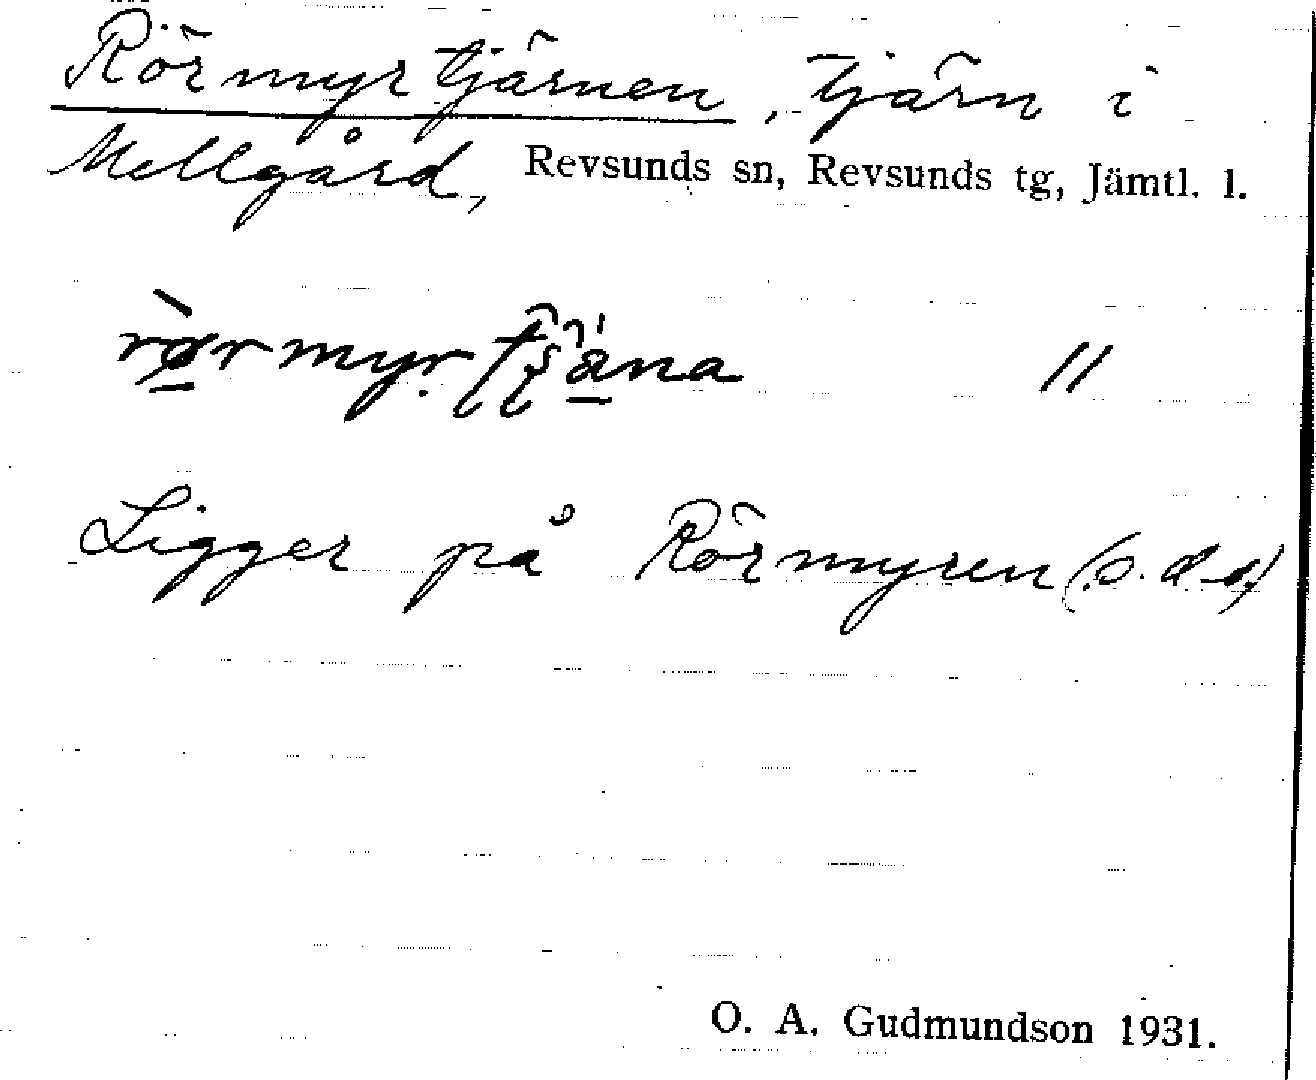 Rörmyrtjärnen, tjärn i
Mellgård, Revsunds sn, Revsunds tg, Jämtl. l.
//
Ligger på Rörmyren (s. d. o.)
O. A. Gudmundson 1931.